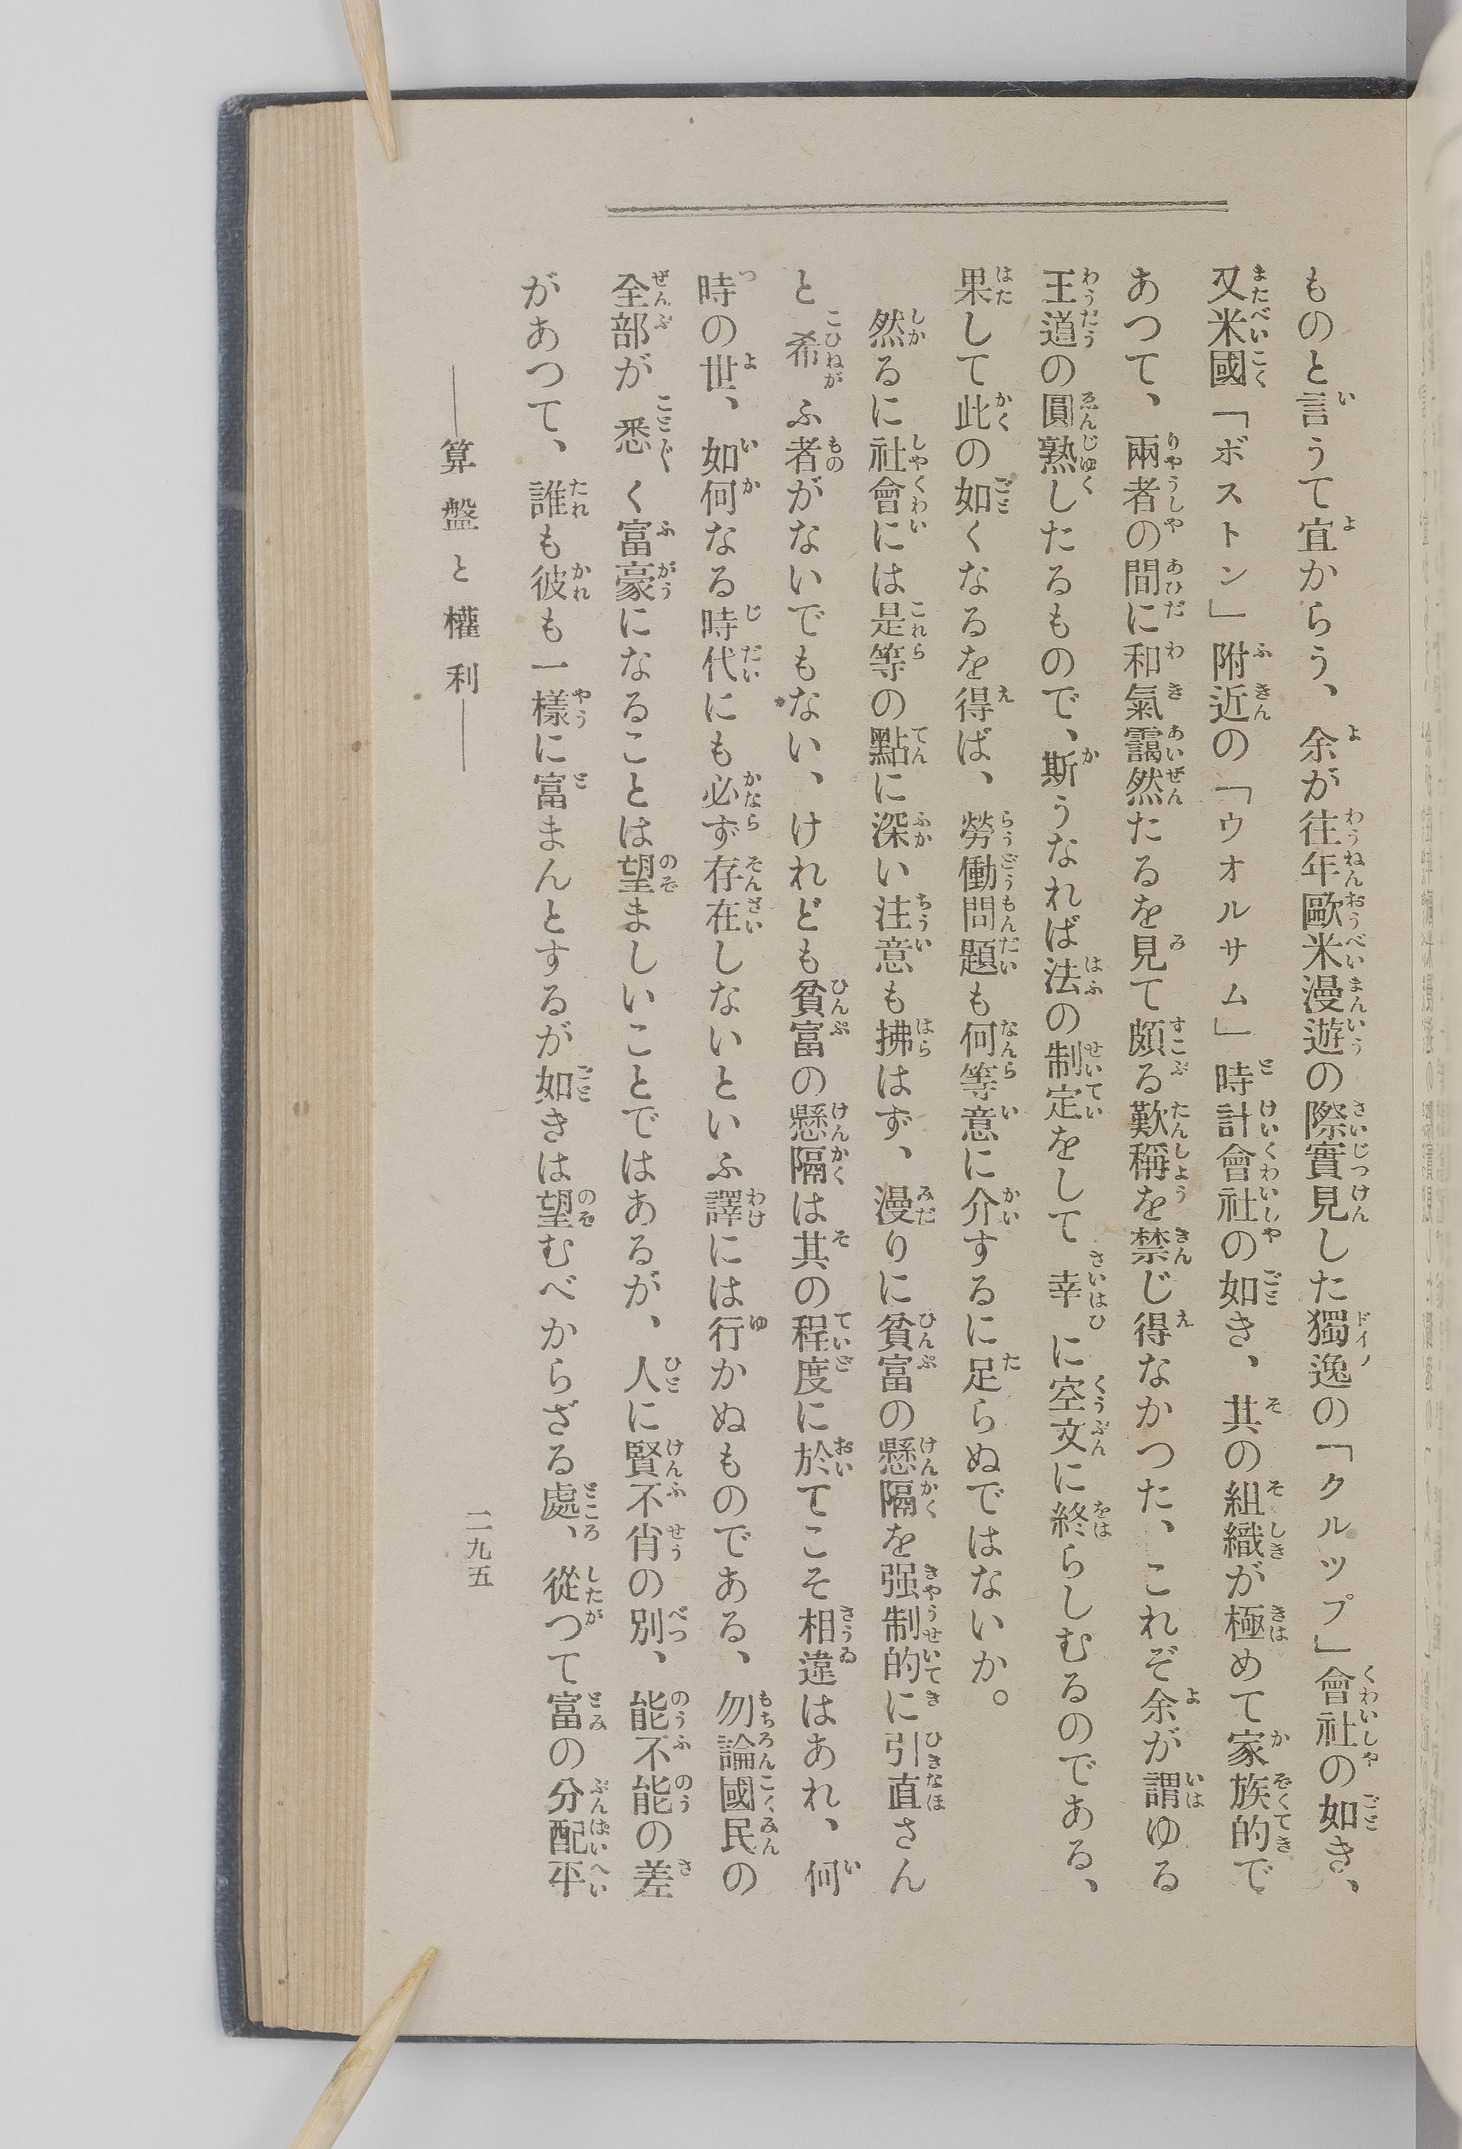 ものと言うて宜からう、余が往年歐米漫遊の際實見した獨逸の「クルップ」會社の如き、
又米國「ボストン」附近の「ウオルサム」時計會社の如き、其の組織が極めて家族的で
あつて、兩者の間に和氣靄然たるを見て頗る歎稱を禁じ得なかつた、これぞ余が謂ゆる
王道の圓熟したるもので、斯うなれば法の制定をして幸に空文に終らしむるのである、
果して此の如くなるを得ば、勞働問題も何等意に介するに足らぬではないか。
然るに社會には是等の點に深い注意も拂はず、漫りに貧富の懸隔を强制的に引直さん
と希ふ者がないでもない、けれども貧富の懸隔は其の程度に於てこそ相違はあれ、何
時の世、如何なる時代にも必ず存在しないといふ譯には行かぬものである、勿論國民の
全部が悉く富豪になることは望ましいことではあるが、人に賢不肖の別、能不能の差
があつて、誰も彼も一樣に富まんとするが如きは望むべからざる處、從つて富の分配平
――算盤と權利――
二九五